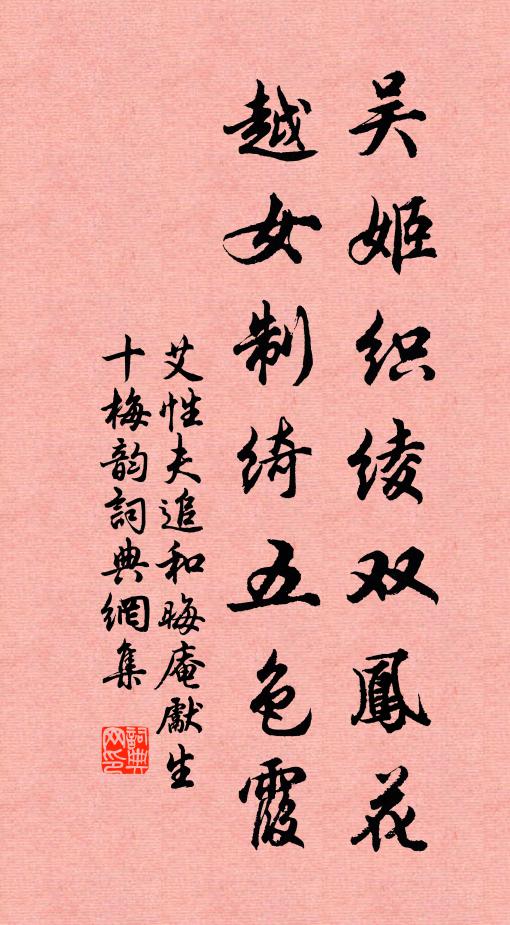 吴姬织绫双鳳花
越女制绮五色霞
艾性夫追和晦庵獻生
十梅韵詞典網集
詞典網印